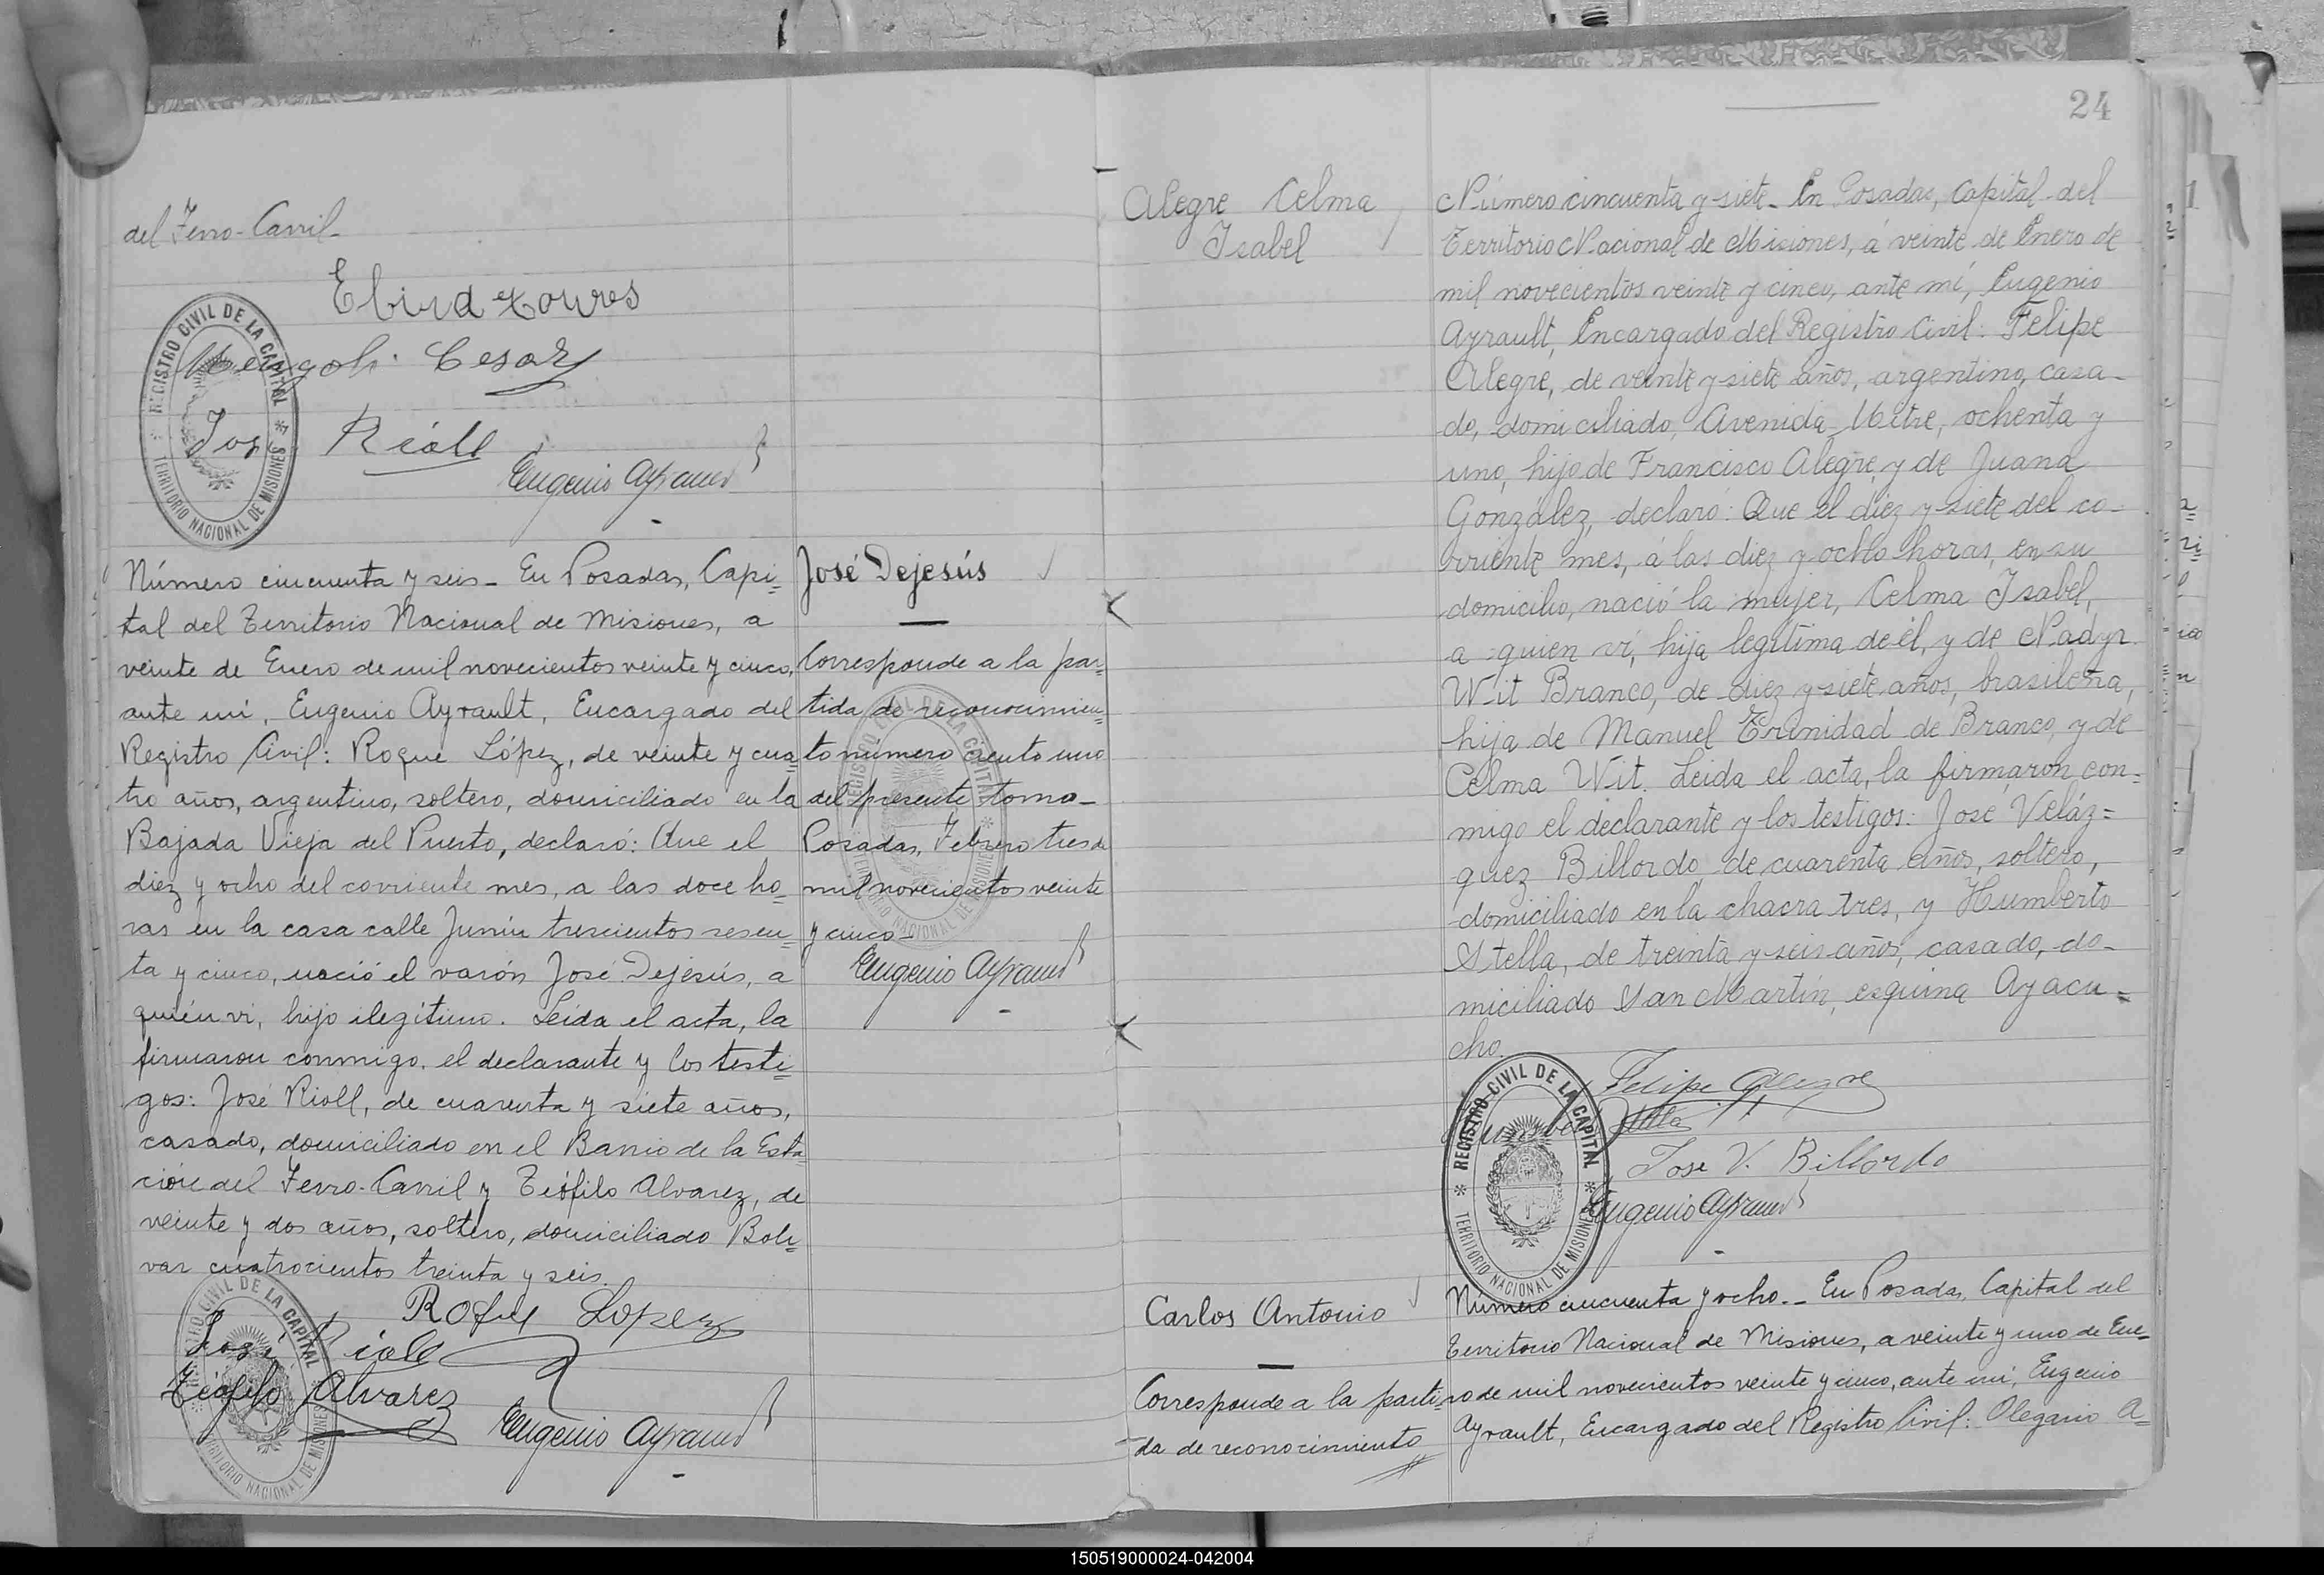 del Ferro-Carril-
Jose Rioll
Eugenio Ayrault
REGISTRO CIVIL DE LA CAPITAL
TERRITORIO NACIONAL DE MISIONES
Número cincuenta y seis_ En Posadas, Capi=
tal del Territorio Nacional de Misiones, a
veinte de Enero de mil novecientos veinte y cinco,
ante mí, Eugenio Ayrault, Encargado del
Registro Civil: Roque López, de veinte y cua=
tro años, argentino, soltero, domiciliado en la
Bajada Vieja del Puerto, declaró: Que el
diez y ocho del corriente mes, a las doce ho=
ras en la casa calle Junín trescientos sesen=
ta y cinco, nació el varón José Dejesús, a
quién vi, hijo ilegítimo. Leída el acta, la
firmaron conmigo, el declarante y los testi=
gos: José Rioll, de cuarenta y siete años,
casado, domiciliado en el Barrio de la Esta=
ción del Ferro-Carril y Teófilo Alvarez, de
veinte y dos años, soltero, domiciliado Bolí=
var cuatrocientos treinta y seis.
Roque Lopez
José Rioll
Teófilo Alvarez
Eugenio Ayrault
REGISTRO CIVIL DE LA CAPITAL
TERRITORIO NACIONAL DE MISIONES
José Dejesús
Corresponde a la par=
tida de reconocimien=
to número ciento uno
del presente tomo_
Posadas, Febrero tres de
mil novecientos veinte
y cinco_
Eugenio Ayrault
REGISTRO CIVIL DE LA CAPITAL
TERRITORIO NACIONAL DE MISIONES
24
Alegre Celma
Isabel
Número cincuenta y siete_ En Posadas, Capital del
Territorio Nacional de Misiones, á veinte de Enero de
mil novecientos veinte y cinco, ante mí, Eugenio
Ayrault, Encargado del Registro Civil: Felipe
Alegre, de veinte y siete años, argentino, casa_
do, domiciliado, Avenida Mitre, ochenta y
uno, hijo de Francisco Alegre, y de Juana
González, declaró: Que el diez y siete del co_
rriente mes, á las diez y ocho horas, en su
domicilio, nació la mujer, Celma Isabel,
a quien ví, hija legítima de él, y de Nadyr
Wit Branco, de diez y siete años, brasileña,
hija de Manuel Trinidad de Branco, y de
Celma Wit. Leida el acta, la firmaron con=
migo el declarante y los testigos: José Veláz=
quez Billordo, de cuarenta años, soltero,
domiciliado en la chacra tres, y Humberto
Stella, de treinta y seis años, casado, do_
miciliado San Martín, esquina Ayacu=
cho.
Felipe Alegre
Humberto Stella
Jose V. Billordo
Eugenio Ayrault
REGISTRO CIVIL DE LA CAPITAL
TERRITORIO NACIONAL DE MISIONES
Carlos Antonio
Corresponde a la parti=
da de reconocimiento
Número cincuenta y ocho._ En Posadas, Capital del
Territorio Nacional de Misiones, a veinte y uno de Ene=
ro de mil novecientos veinte y cinco, ante mí, Eugenio
Ayrault, Encargado del Registro Civil: Olegario A=
150519000024-042004